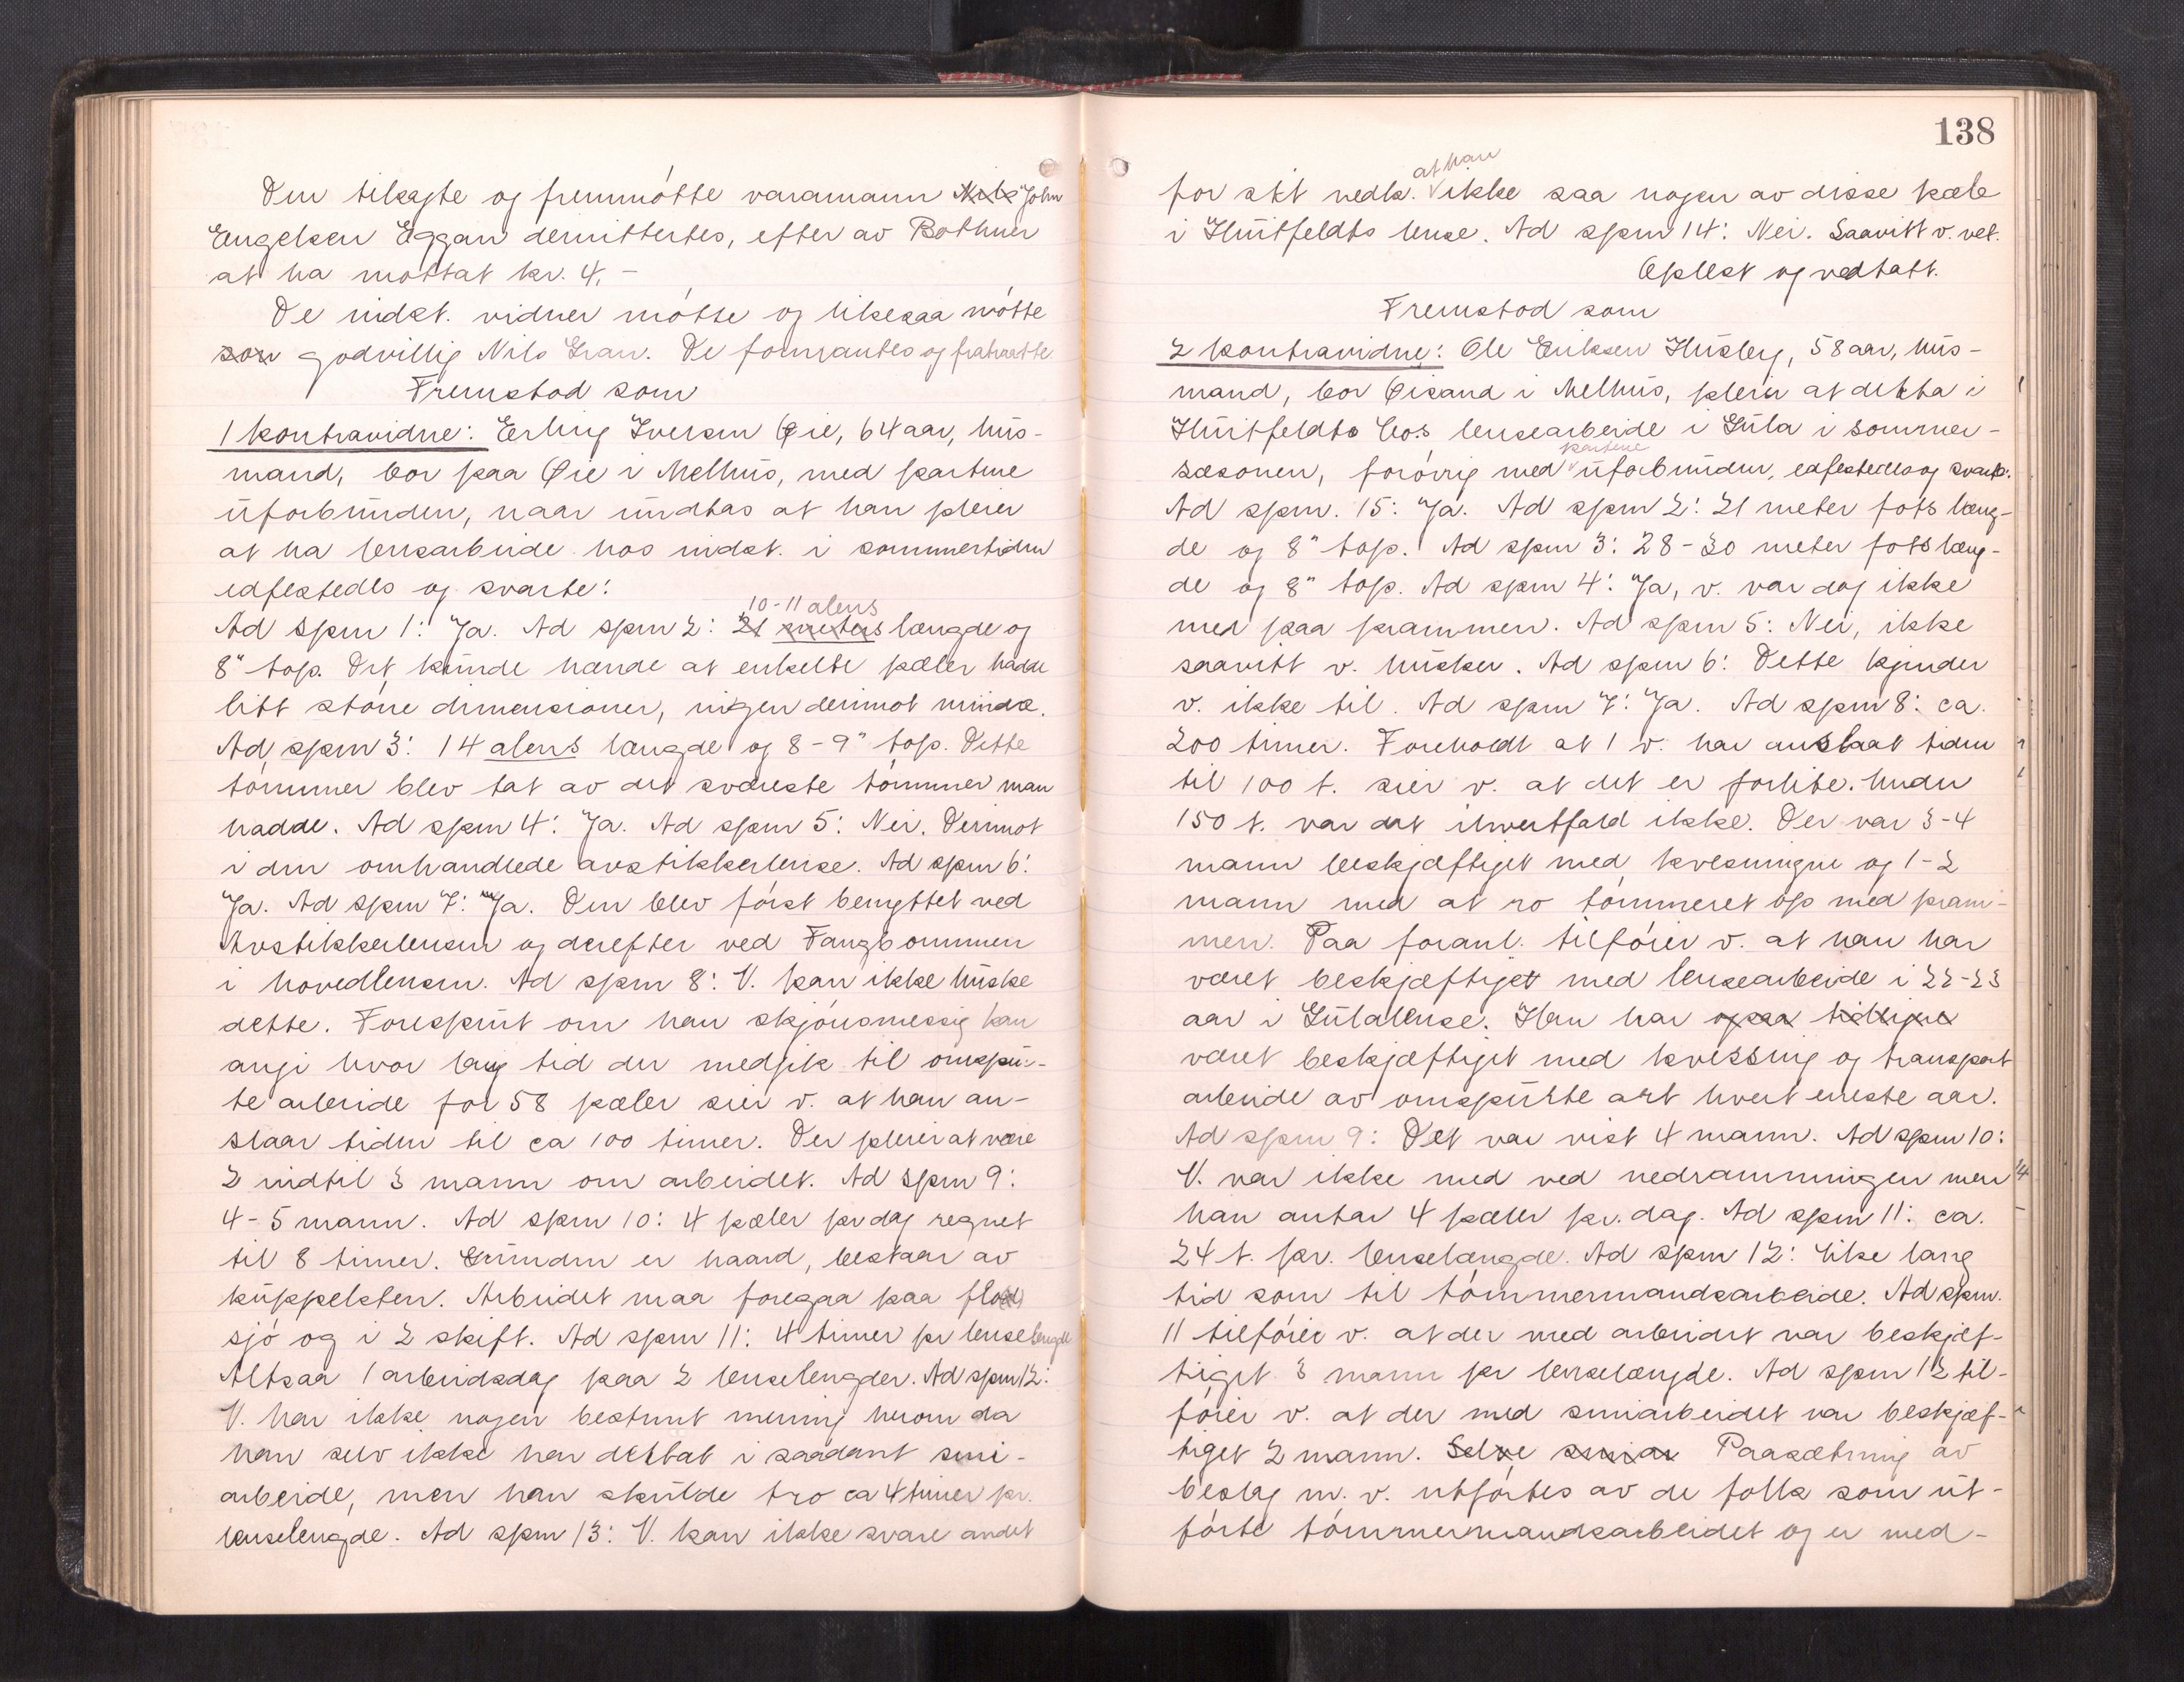 Den tilsagte og fremmøtte varamann Nils John
Engelsen Eggan demittertes, efter av Bothner
at ha mottat kr. 4,-
De indst. vidner møtte og likesaa møtte
som godvillig Nils Gran. De formantes og fratraatte
Fremstod som
1 kontravidne: Erling Iversen Øie, 64 aar, hus-
mand, bor paa Øie i Melhus, med partene
uforbunden, naar undtas at han pleier
at ha lensarbeide hos indst. i sommertiden
edfestedes og svarte:
10-11 alens
Ad spm 1: Ja. Ad spm 2: 21 meters længde og
8" top. Det kunde hænde at enkelte pæler hadde
litt større dimensioner, ingen derimot mindre.
Ad spm 3: 14 alens længde og 8-9" top. Dette
tømmer blev tat av det sværeste tømmer man
hadde. Ad spm 4: Ja. Ad spm 5: Nei. Derimot
i den omhandlede avstikkerlense. Ad spm 6:
Ja. Ad spm 7: Ja. Den blev først benyttet ved
Avstikkerlensen og derefter ved Fangbommen
i hovedlensen. Ad spm 8: V. kan ikke huske
dette. Forespurt om han skjønsmessig kan
angi hvor lang tid der medgik til omspur-
te arbeide for 58 pæler sier v. at han an-
slaar tiden til ca 100 timer. Der pleier at være
2 indtil 3 mann om arbeidet. Ad spm 9:
4-5 mann. Ad spm 10: 4 pæler pr dag regnet
til 8 timer. Grunden er haard, bestaar av
kuppelsten. Arbeidet maa foregaa paa flod
sjø og i 2 skift. Ad spm 11: 4 timer pr lenselengde
Altsaa 1 arbeidsdag paa 2 lenselengder. Ad spm 12:
V. har ikke nogen bestemt mening herom da
han selv ikke har deltat i saadant smi-
arbeide, men han skulde tro ca 4 timer pr.
lenselengde. Ad spm 13: V. kan ikke svare andet
138
at han
for sit vedk. ikke saa nogen av disse pæle
i Huitfeldts lense. Ad spm 14: Nei. Saavitt v. vet.
Oplest og vedtatt.
Fremstod som
2 kontravidne: Ole Eriksen Husby, 58 aar, hus-
mand, bor Øisand i Melhus, pleier at delta i
Huitfeldts Co.s lensearbeide i Gula i sommer-
partene
sæsonen, forøvrig med uforbunden, edfestedes og svarte:
Ad spm. 15: Ja. Ad spm 2: 21 meter fots læng-
de og 8" top. Ad spm 3: 28-30 meter fots læng-
de og 8" top. Ad spm 4: Ja, v. var dog ikke
med paa prammen. Ad spm 5: Nei, ikke
saavitt v. husker. Ad spm 6: Dette kjender
v. ikke til. Ad spm 7: Ja. Ad spm 8: ca.
200 timer. Foreholdt at 1 v. har anslaat tiden
til 100 t. sier v. at det er forlite. Under
150 t. var det ihvertfald ikke. Der var 3-4
mann beskjæftiget med kvesningen og 1-2
mann med at ro tømmeret op med pram-
men. Paa foranl. tilføier v. at han har
været beskjæftiget med lensearbeide i 22-23
aar i Gulalense. Han har ogsaa tidligere
været beskjæftiget med kvessing og transport
arbeide av omspurte art hvert eneste aar.
Ad spm 9: Det var vist 4 mann. Ad spm 10:
V. var ikke med ved nedrammingen men
han antar 4 pæler pr. dag. Ad spm 11: ca.
24 t. pr. lenselængde. Ad spm 12: like lang
tid som til tømmermandsarbeide. Ad spm.
11 tilføier v. at der med arbeidet var beskjæf-
tiget 3 mann pr lenselængde. Ad spm 12 til-
føier v. at der med smiarbeidet var beskjæf-
tiget 2 mann. Selve smiar Paasætning av
beslag m. v. utførtes av de folk som ut-
førte tømmermandsarbeidet og er med-